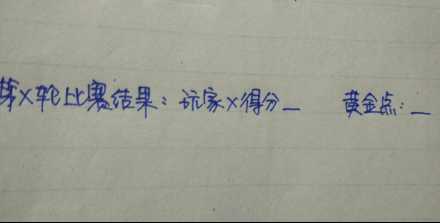 第×轮比赛结果：玩家×得分_ 黄金点：_